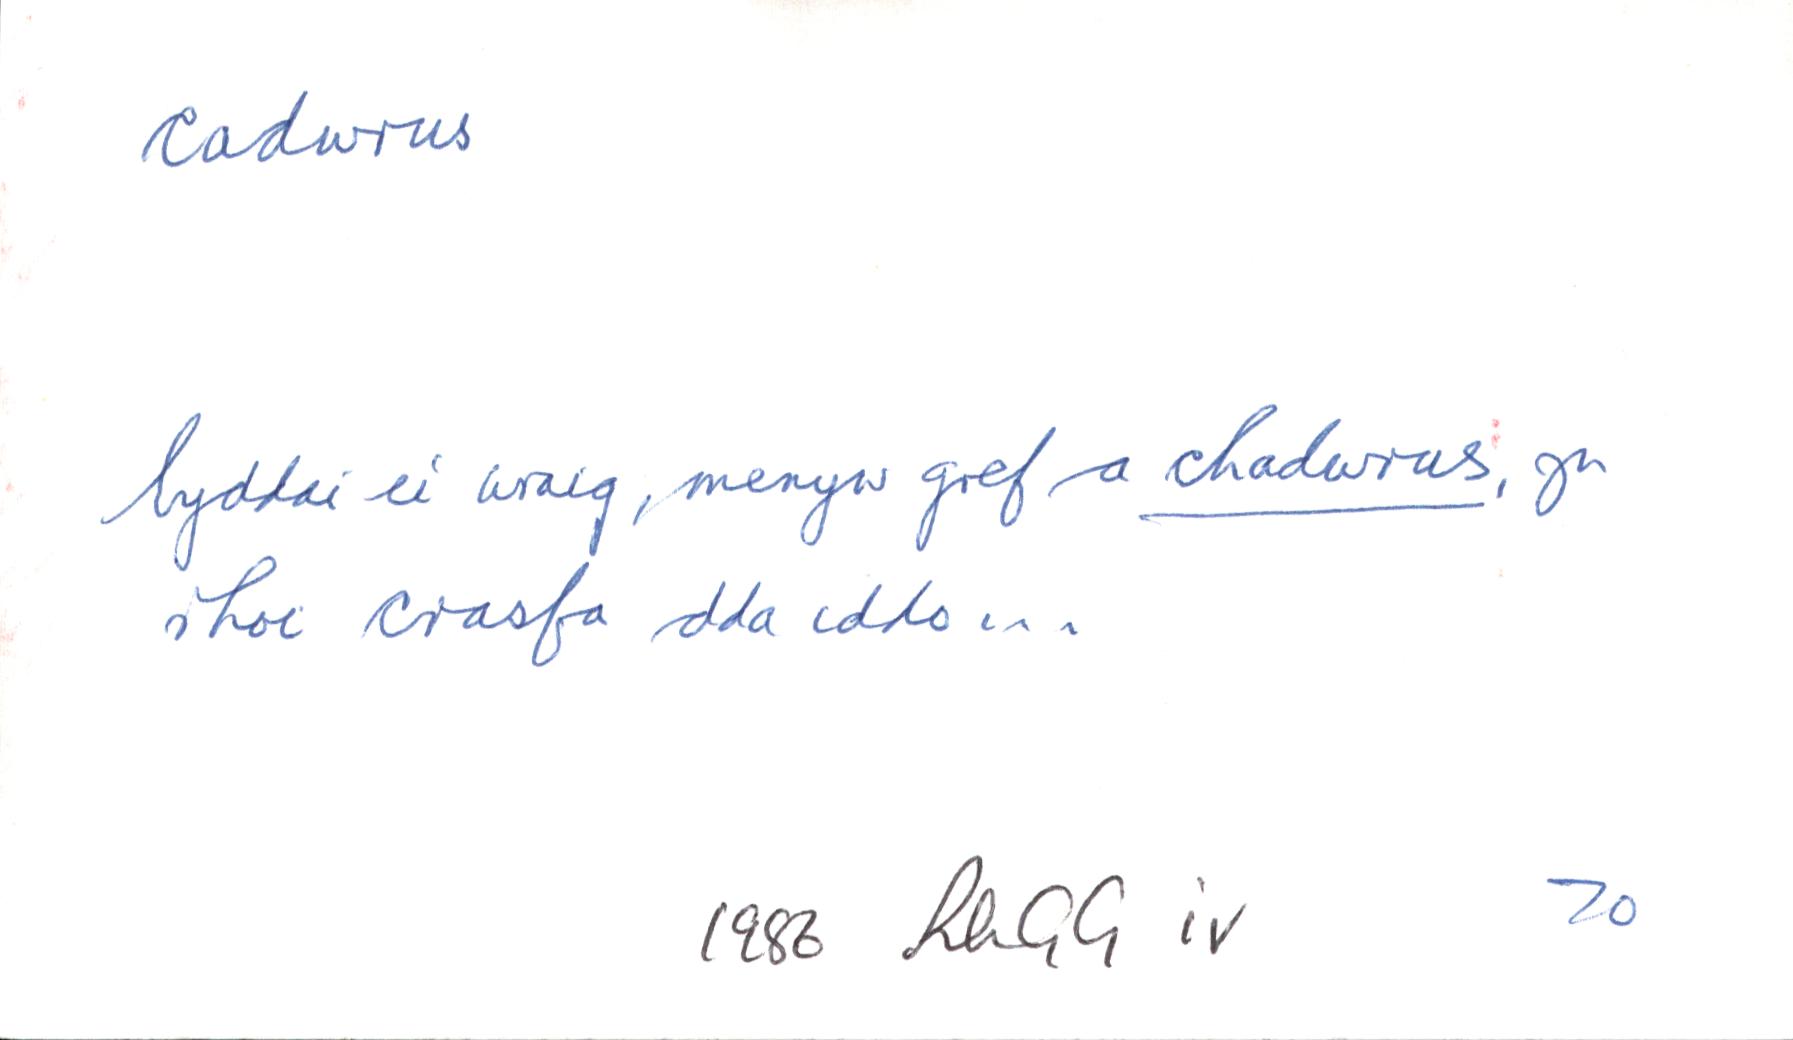 cadwrus
byddai ei wraig, menyw gref a chadwrus, yn
rhoi crasfa dda iddo...
1986 LlGG iv 70